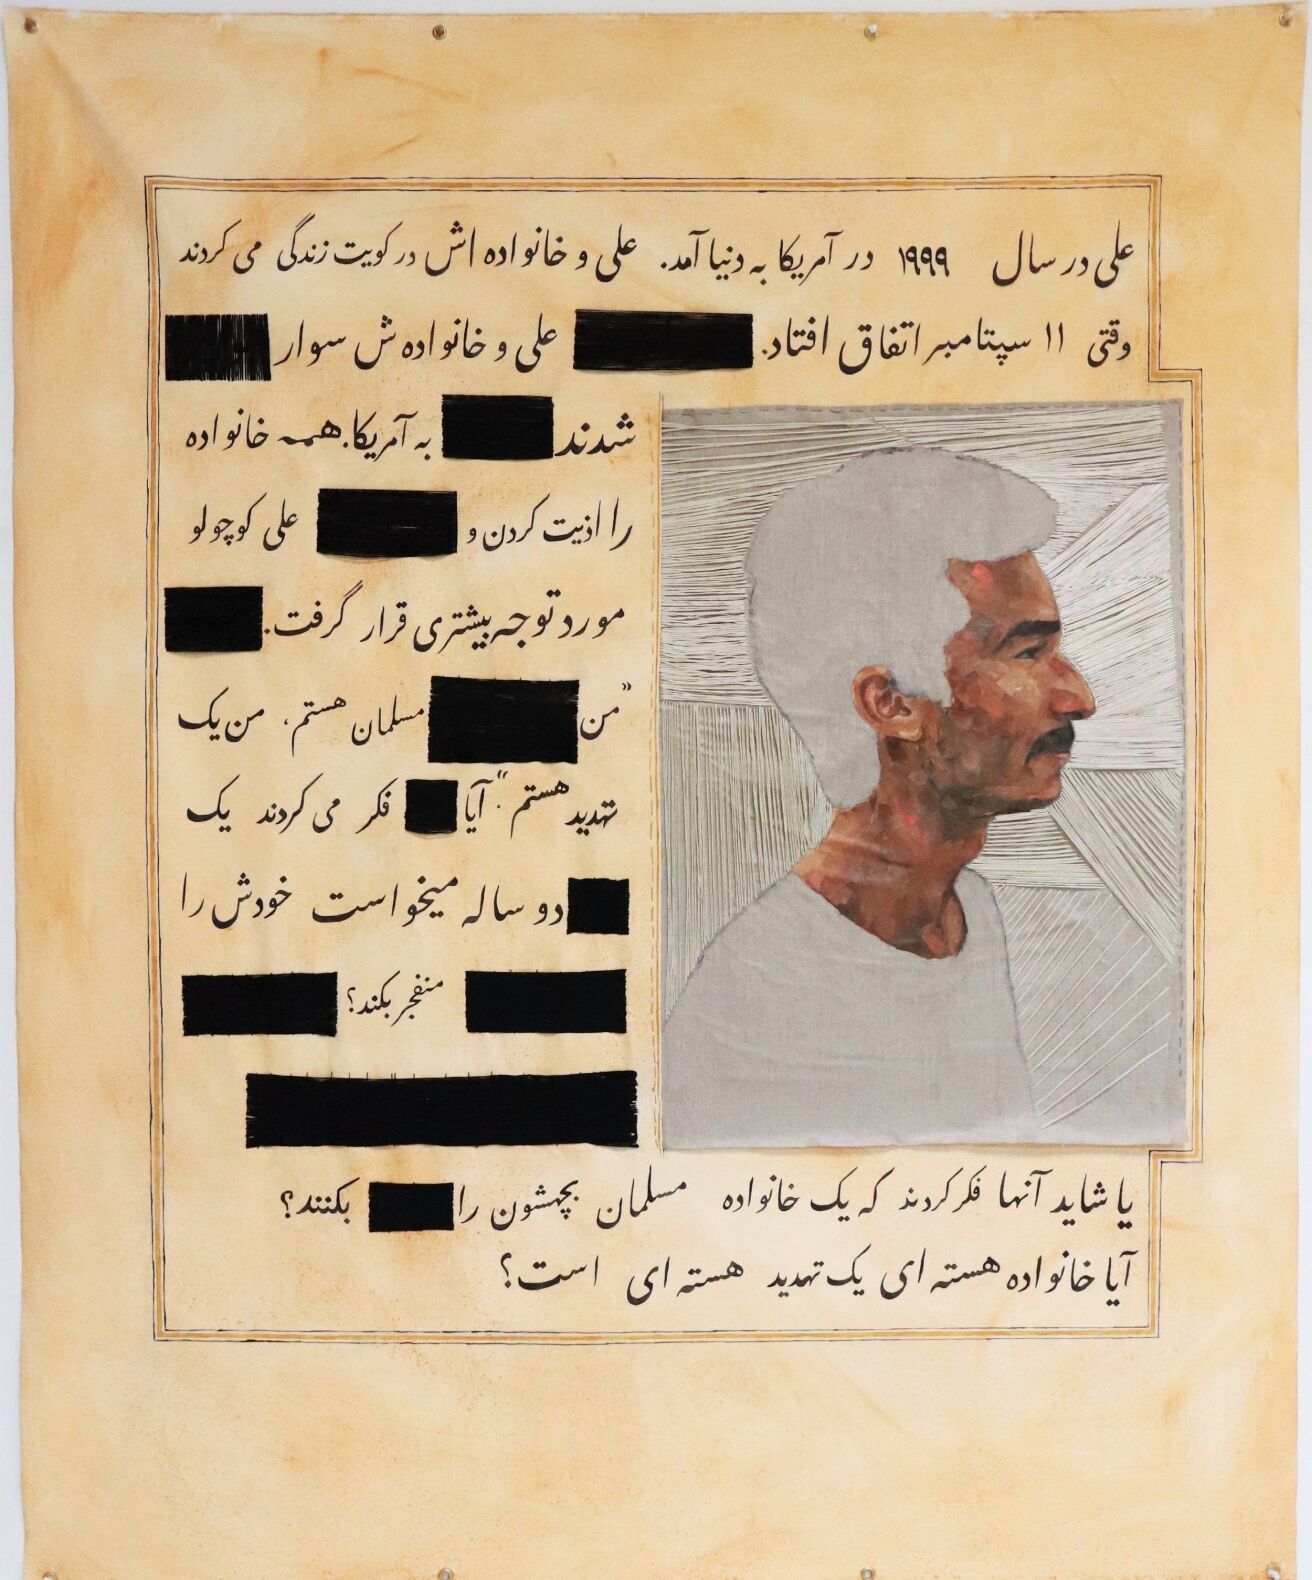 علی در سال ۱۹۹۹ در آمریکا به دنیا آمد. علی و خانواده اش در کویت زندگی می کردند
وقتی ۱۱ سپتامبر اتفاق افتاد. علی و خانواده ش سوار
شدند به آمریکا. همه خانواده
را اذیت کردن و علی کوچولو
مورد توجه بیشتری قرار گرفت.
"من مسلمان هستم، من یک
تهدید هستم". آیا فکر می کردند یک
دو ساله میخواست خودش را
منفجر بکند؟
یا شاید آنها فکر کردند که یک خانواده مسلمان بچهشون را بکنند؟
آیا خانواده هسته ای یک تهدید هسته ای است؟